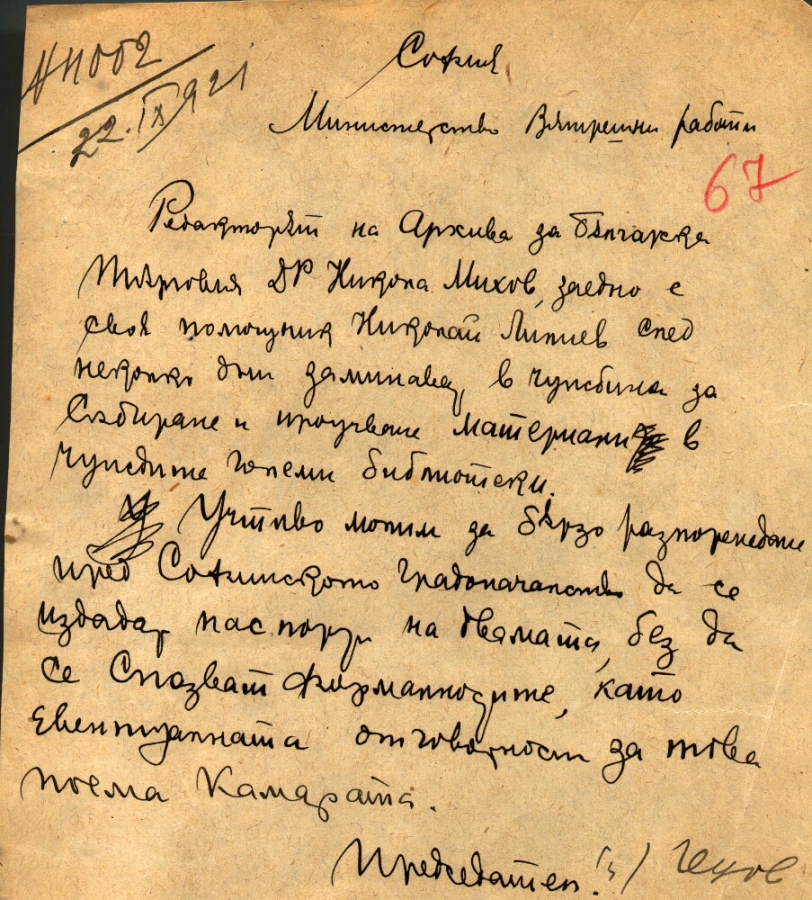 № 11002
22.IX 921
София
Министерство Вятрешни работи
67
Редакторът на Архива за българска
търговия Др Никола Михов, заедно с
своя помощник Николай Липиев след
неколко дни заминават в чужбина за
Събиране и проучване материали в
чуждите големи библиотеки.
Учтиво молим за бързо разпореждане
пред Софийското градоначалство да се
издадат паспорти на двамата, без да
се спазват формалностите, като
евентуалната отговорност за това
поема Камарата.
Председател: